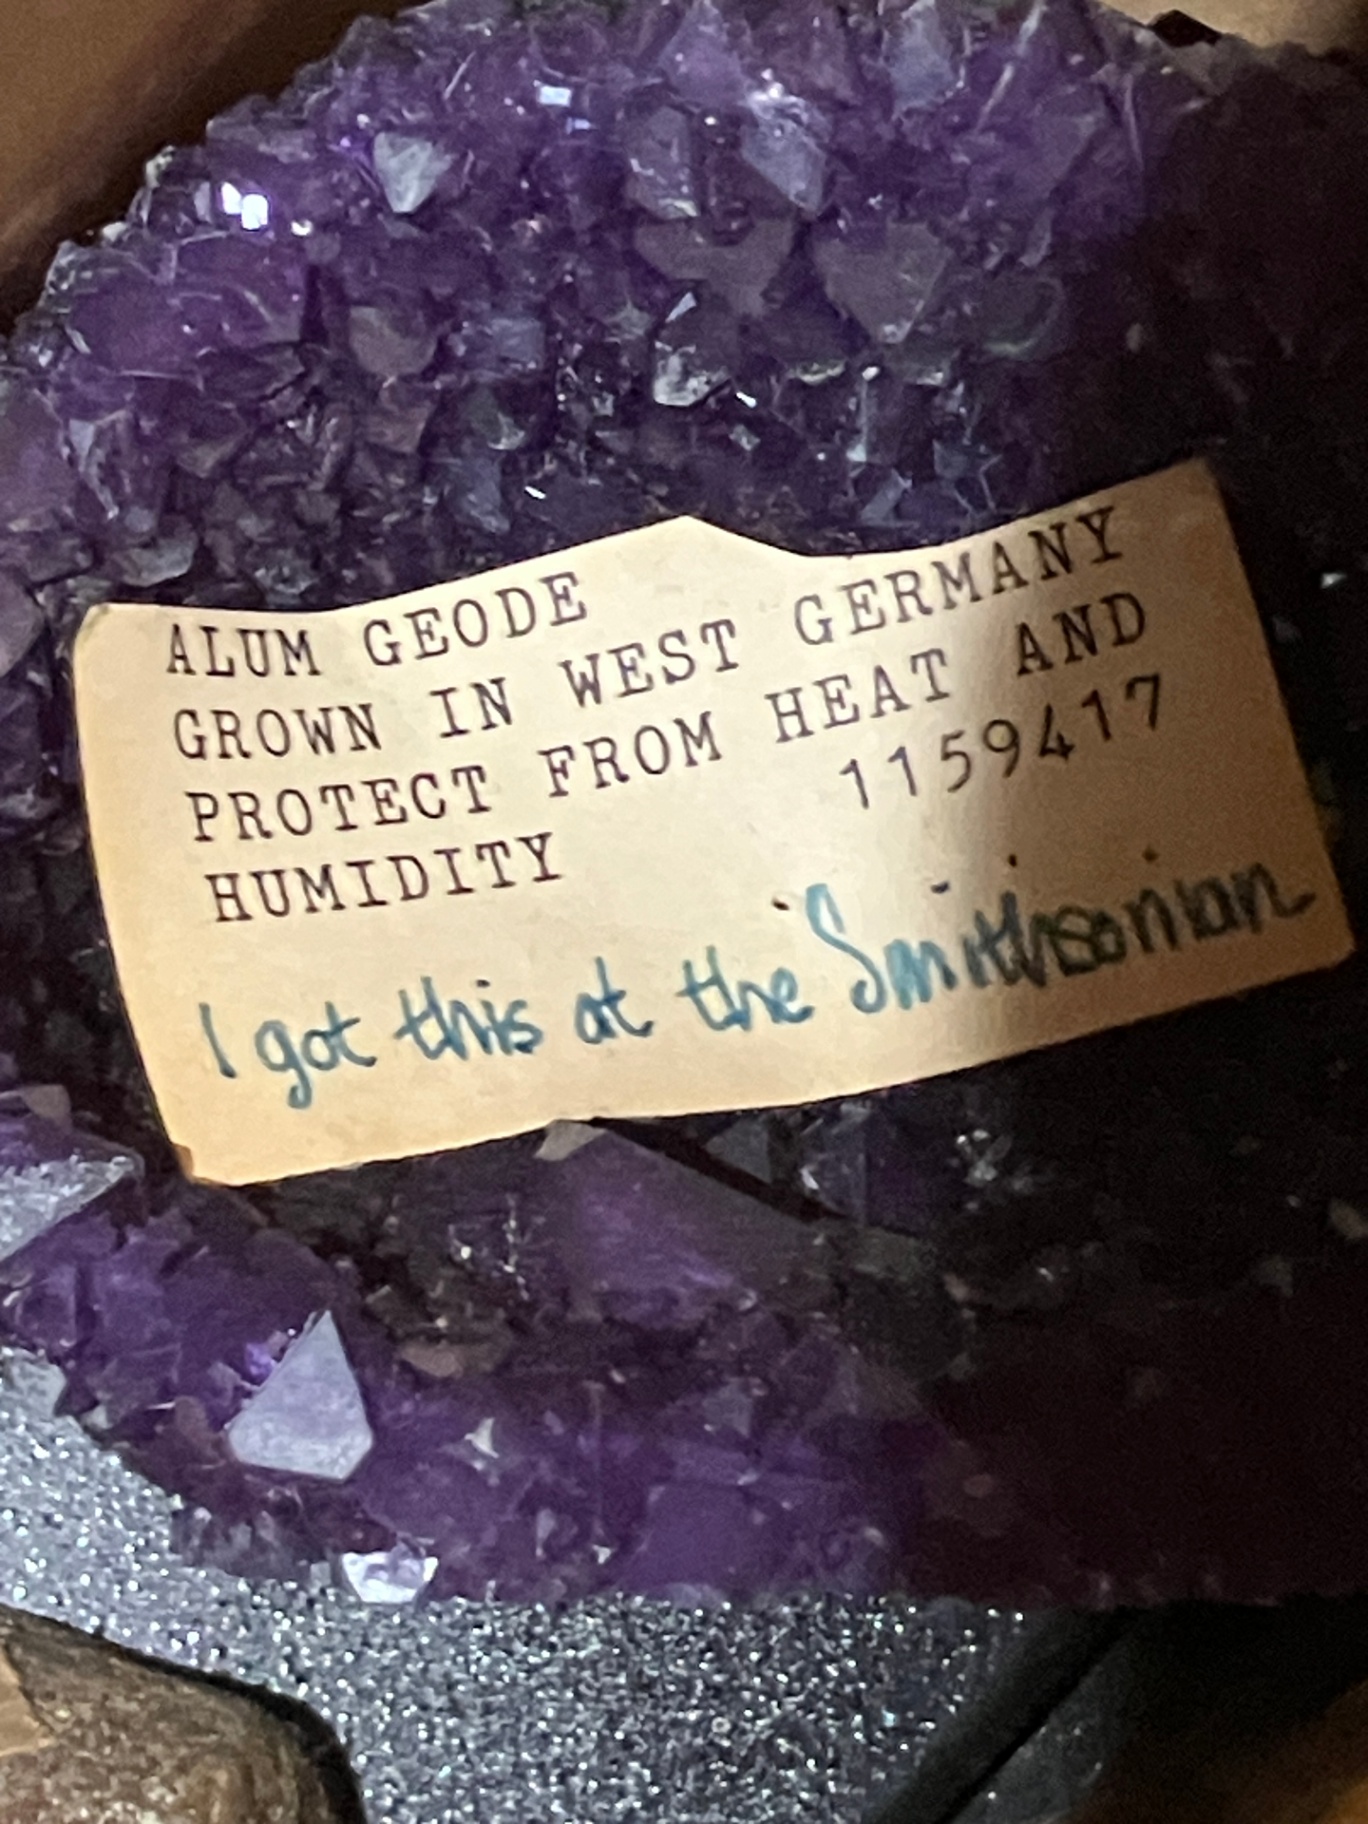 ALUM GEODE
GROWN IN WEST GERMANY
PROTECT FROM HEAT AND
HUMIDITY 1159417
I got this at the Smithsonian